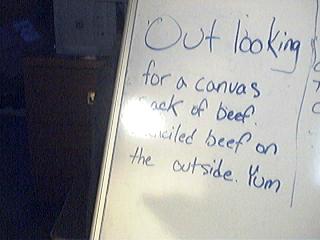 Out looking
for a canvas
sack of beef.
beef on
the outside. Yum